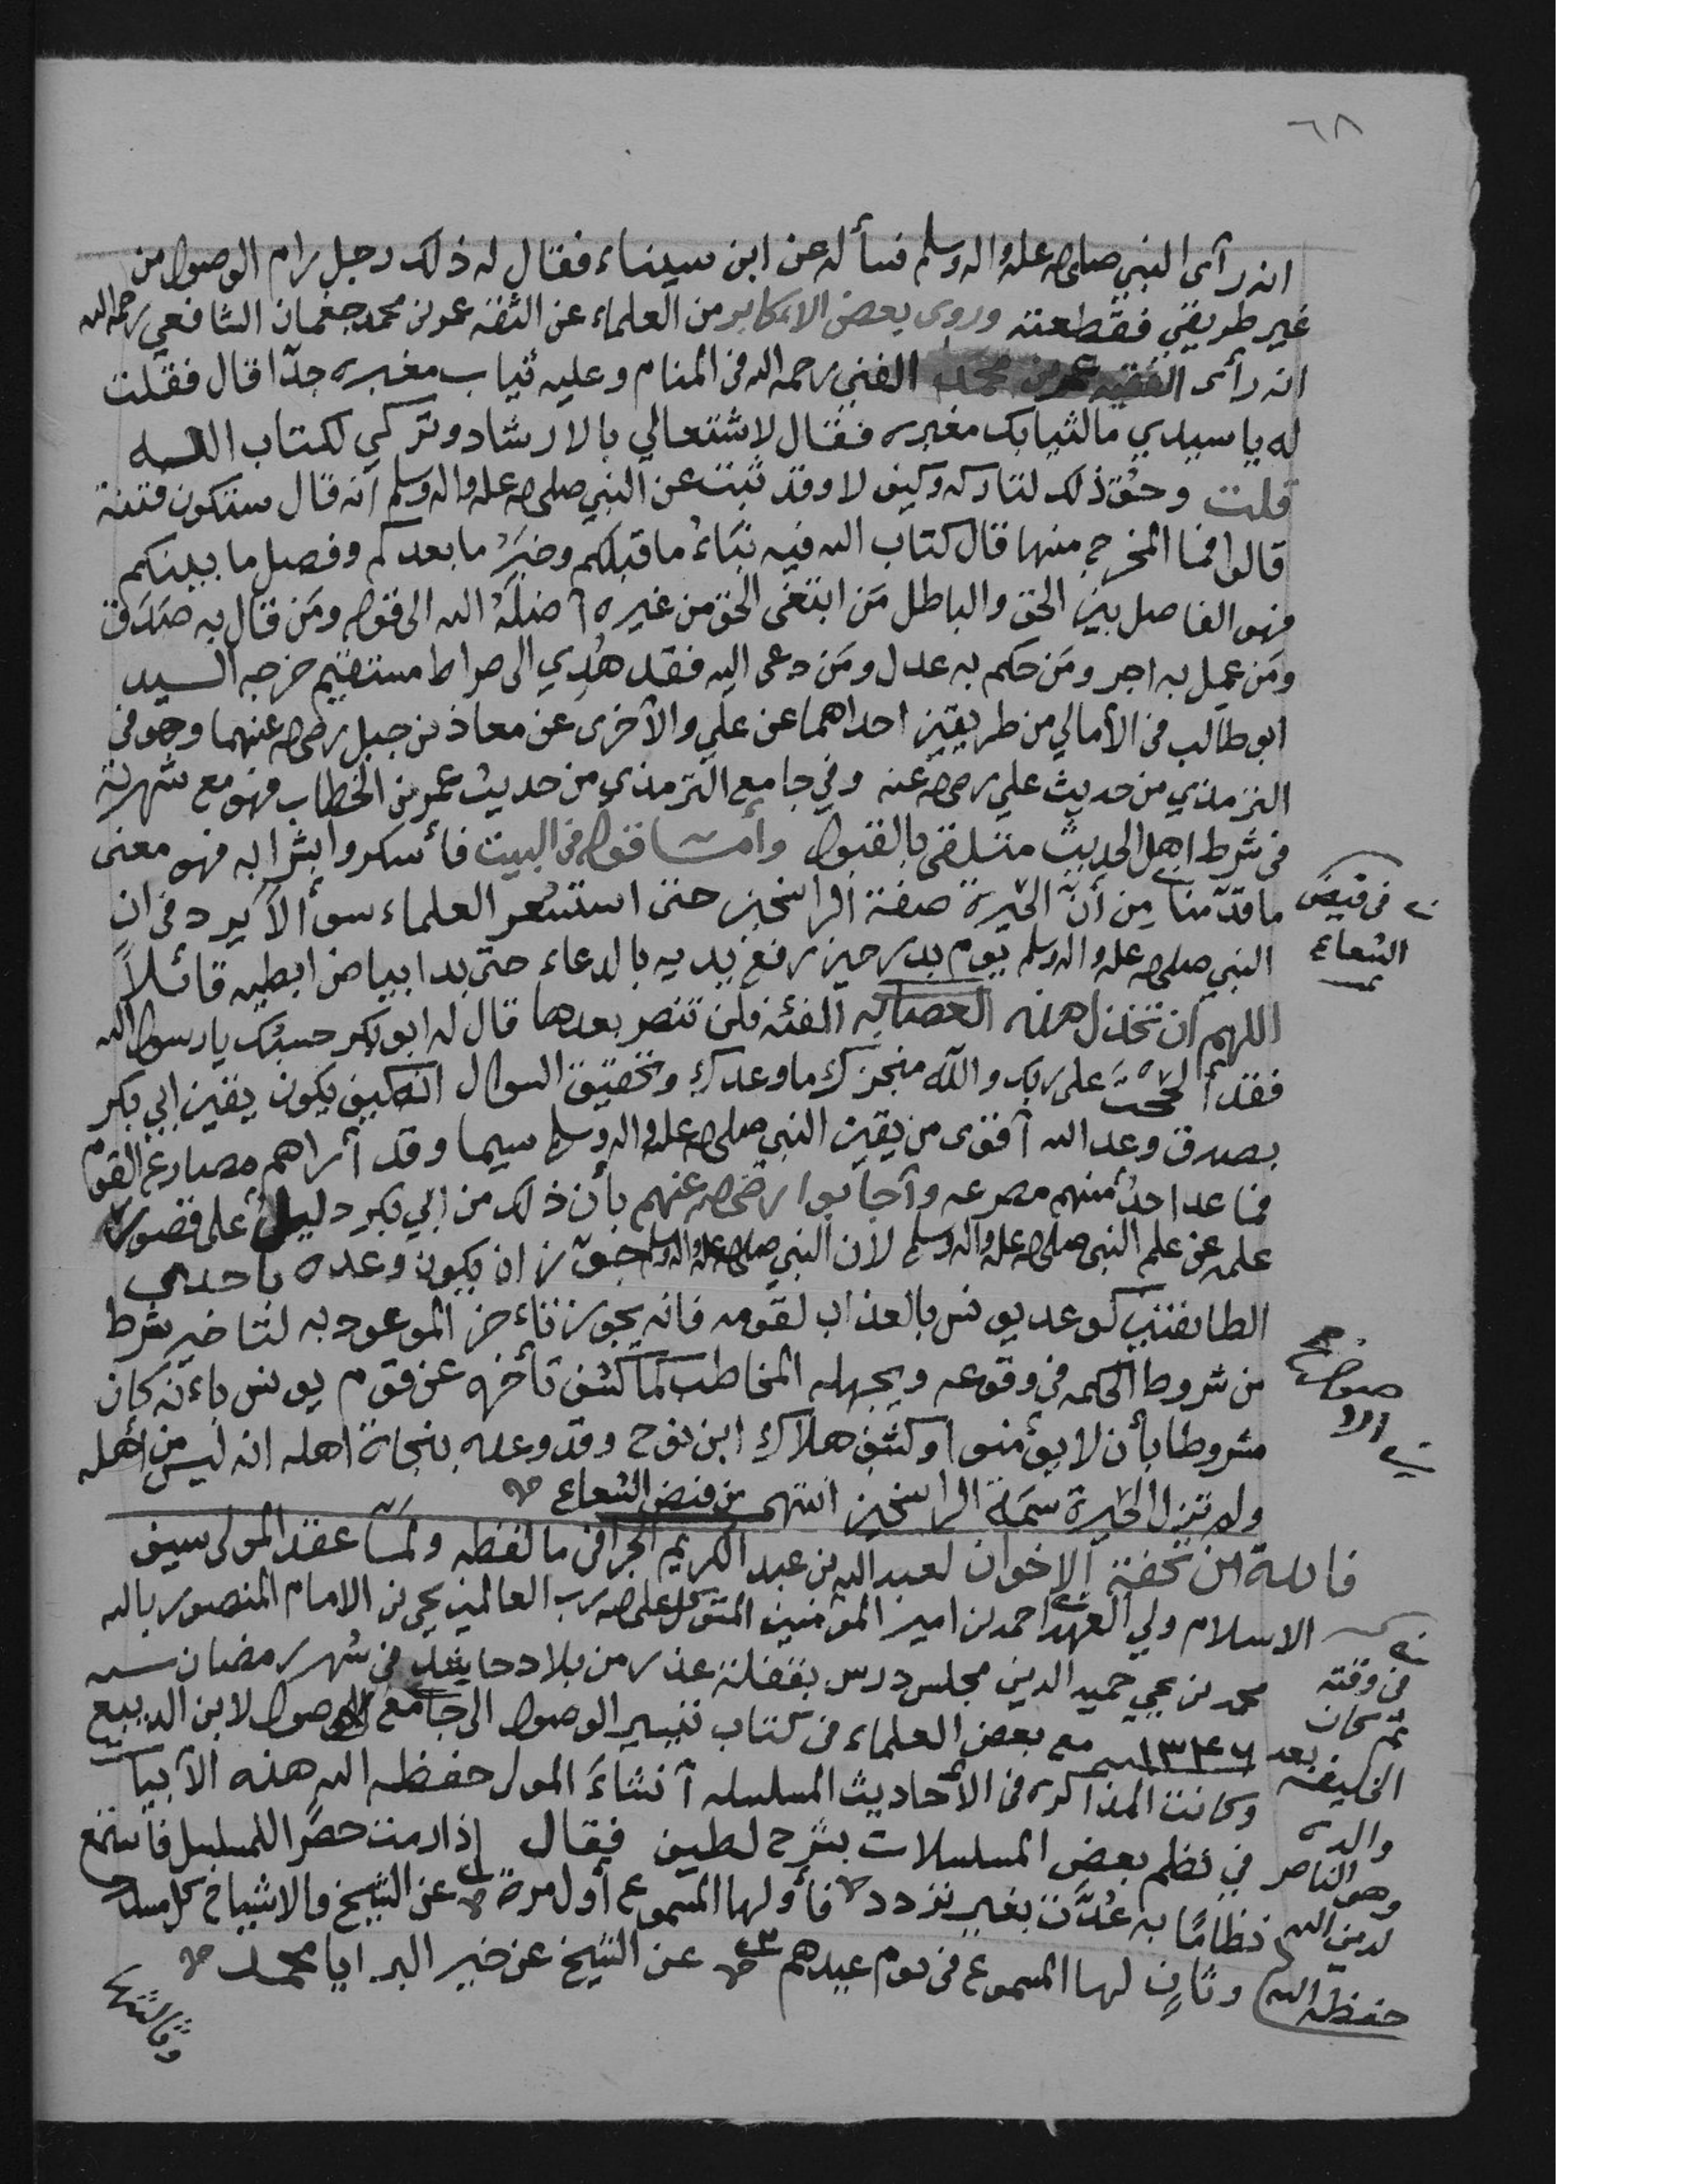 ٦٨
انه رأى النبي صلى الله عليه واله وسلم فسأله عن ابن سيناء فقال له ذلك رجل رام الوصول من
غير طريقي فقطعته وروى بعض الاكابر من العلماء عن الثقه عمر بن محمد جغمان الشافعي رحمه الله
انه رأى الفقيه عمر بن محمد الفتي رحمه الله في المنام وعليه ثياب مغبره جدًا قال فقلت
له يا سيدي ما لثيابك مغبره فقال لاشتغالي بالارشاد وتركي لكتاب الله
قلت وحُق ذلك لتاركه وكيف لا وقد ثبت عن النبي صلى الله عليه واله وسلم أنه قال ستكون فتنة
قالوا فما المخرج منها قال كتاب الله فيه نبَاءُ ما قبلكم وخبرُ ما بعدكم وفصل ما بينكم
فهو الفاصل بين الحق والباطل مَن ابتغى الحق من غيره أضلهُ الله الى قوله ومَن قال به صَدَق
ومَن عمِل به اجر ومَن حكم به عدل ومَن دعى اليه فقد هُدِي الى صراط مستقيم خرجه السيد
ابو طالب في الأمالي من طريقين احداهما عن علي والأخرى عن معاذ بن جبل رضي الله عنهما وهو في
الترمذي من حديث علي رضي الله عنه وفي جامع الترمذي من حديث عمر بن الخطاب فهو مع شهرته
في شرط اهل الحديث متلقى بالقبول وأما قوله في البيت فأسكروا بشرابه فهو معنى
ما قدّمنا من أنّ الحَيرة صفة الراسخين حتى استشعر العلماء سوألاً يرد في ان
النبي صلى الله عليه واله وسلم يوم بدر حين رفع يديه بالدعاء حتى بدا بياض ابطيه قائلاً
اللهم ان تخذل هذه العصابه الفئه فلن تنصر بعدها قال له ابو بكر حسبك يا رسول الله
فقد ألححتَ على ربك والله منجز لك ما وعدك وتحقيق السوال انه كيف يكون يقين ابي بكر
بصدق وعد الله أقوى من يقين النبي صلى الله عليه واله وسلم سيما وقد أراهم مصارع القوم
فما عدا احدٌ منهم مصرعه وأجابوا رضي الله عنهم بأن ذلك من ابي بكر دليل على قصور
علمه عن علم النبي صلى الله عليه واله وسلم لأن النبي صلى الله عليه واله وسلم جوّز ان يكون وعده باحدى
الطائفتين كوعد يونس بالعذاب لقومه فانه يجوز تاءخر الموعود به لتاخير شرط
من شروط الحكمه في وقوعه ويجهله المخاطب كما كشف تأخره عن قوم يونس باءنه كان
مشروطا بأن لا يؤمنوا وكشف هلاك ابن نوح وقد وعده بنجاة اهله انه ليس من أهله
ولم تزل الحَيرة سمَة الراسخين انتهى من قبض الشعاع
فائدة من تحفة الاخوان لعبد الله بن عبد الكريم الجرافي ما لفظه ولمّا عقد المولى سيف
الاسلام ولي العهد احمد بن امير المؤمنين المتوكل على الله رب العالمين يحيى بن الامام المنصور بالله
محمد بن يحيى حميد الدين مجلس درس بقفلة عذر من بلاد حاشد في شهر رمضان سنه
١٣٤٦ مع بعض العلماء في كتاب تيسير الوصول الى جامع الاصول لابن الديبع
وكانت المذاكره في الأحاديث المسلسله أنشاءَ المولى حفظه الله هذه الأبيات
في نظم بعض المسلسلات بشرح لطيف فقال إذا رمت حصرًا للمسلسل فاستمع
نظامًا به عُدَّت بغير تردد فأولها المسموع أول مرة عن الشيخ والاشياخ كل مسلسل
وثانٍ لها المسموع في يوم عيدهم عن الشيخ عن خير البرايا محمد
وثالثها
في قبض
الشعاع
في وقته
ثم كان
الخليفه بعد
والده
وهو الناصر
لدين الله
حفظه الله